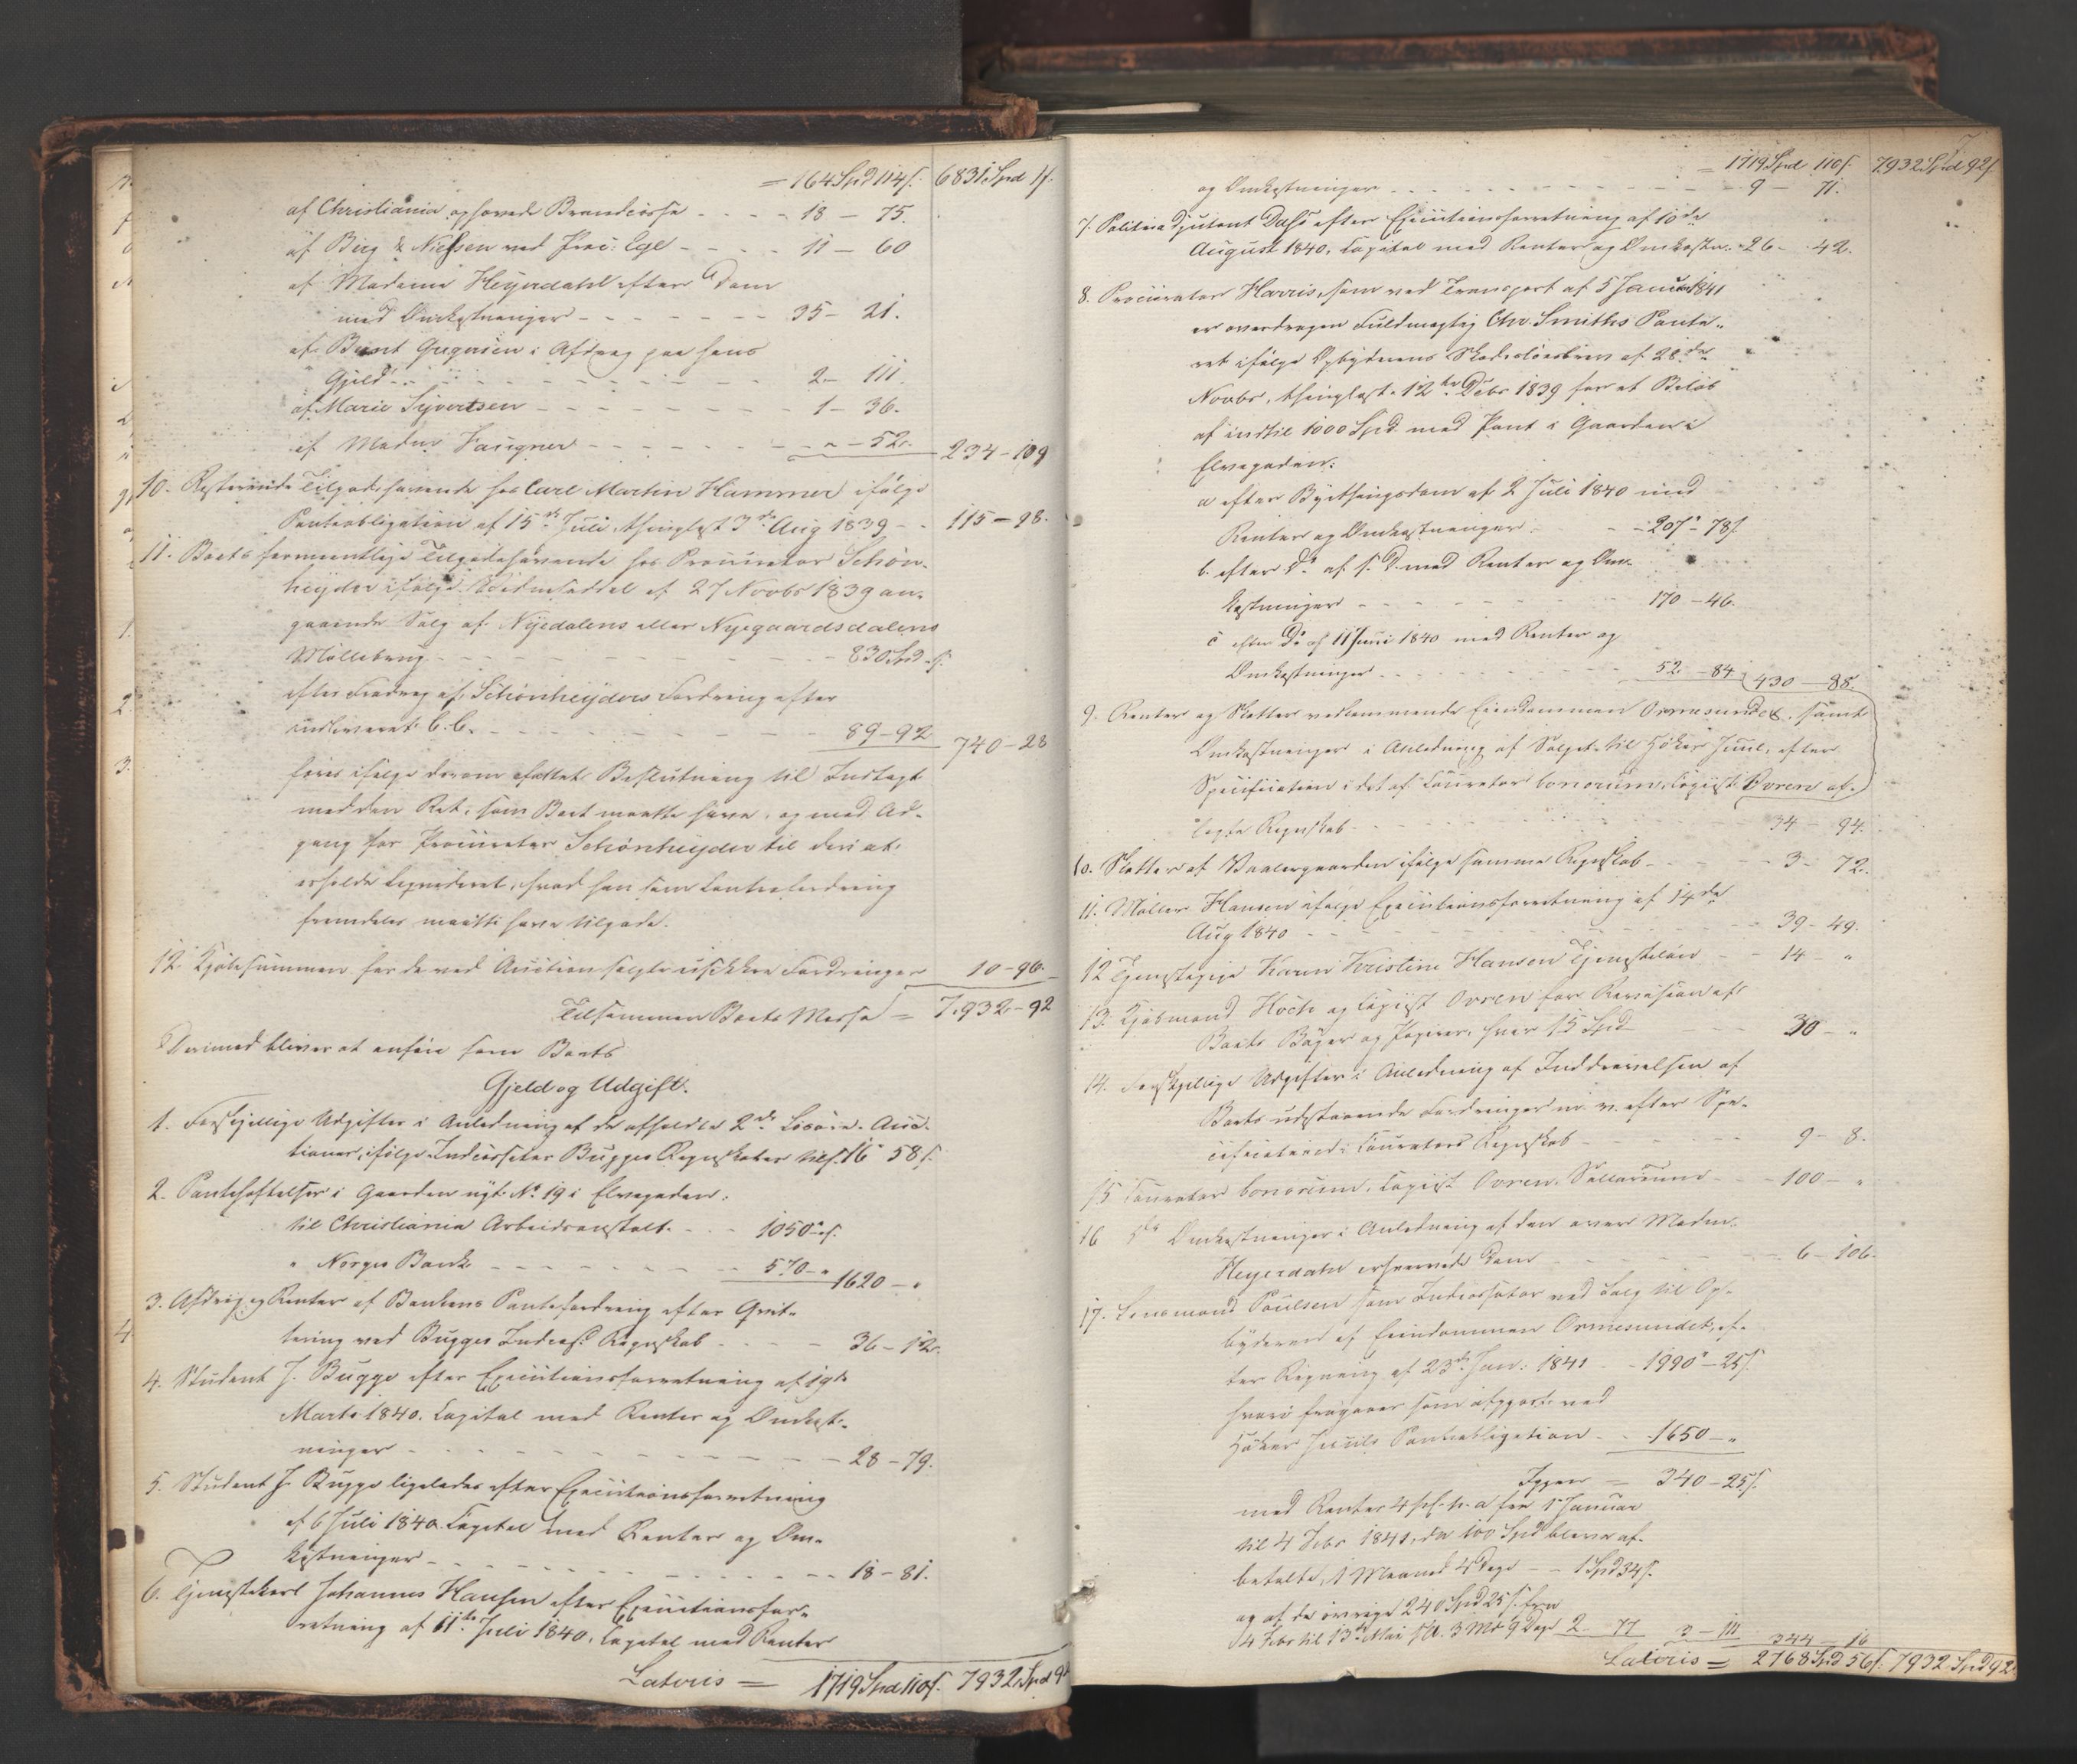 = 164 Spd 114 s. 6831 Spd 1 s.
af Christiania ophævede Brandcasse - - - - 18 - 75.
af Berg & Nielsen ved Proc: Egl - - - - 11 - 60
af Madame Heyerdahl efter Dom
med Omkostninger - - - - - - 35 - 21.
af Berent Gregersen i Afdrag paa hans
Gjeld - - - - - - - - 2 - 111.
af Marie Syvertsen - - - - - - - 1 - 36.
af Madm - - - - - - " - 52. 234 - 109
10. Resterende Tilgodehavende hos Carl Martin Hammer ifølge
Panteobligation af 15de Juli, thinglæst 3de Aug 1839 - - 115 - 98.
11. Boets formentlige Tilgodehavende hos Procurator Schøn-
heyder ifølge af 27 Novbr 1839 an-
gaaende Salg af Nyedalens eller Nyegaardsdalens
Møllebrug - - - - - - - - 830 Spd - s.
efter Fradrag af Schønheyders Fordring efter
indleveret C.C. - - - - - - - 89 - 92 740 - 28
føres ifølge derom afattet Beslutning til Indtægt
med den Ret, som Boet maatte have, og med Ad-
gang for Procurator Schønheyder til deri at
erholde liqvideret, hvad han som Contrafordring
fremdeles maatte have tilgode.
12. Kjøbesummen for de ved Auction solgte usikkre Fordringer 10 - 96.
Tilsammen Boets Massa = 7,932 - 92
Derimod bliver at anføre som Boets
Gjeld og Udgift.
1. Forskjellige Udgifter i Anledning af de afholdte 2de Løsøre-Auc-
tioner, ifølge Incassator Bugges Regnskaber tils. 16 58 s.
2. Pantehæftelser i Gaarden nyt No 19 i Elvegaden:
til Christiania Arbeidsanstalt - - - 1050 - s.
" Norges Bank - - - - - - 570 - " 1620 - "
3. Afdrag og Renter af Bankens Pantefordring efter Qvit-
tering ved Bugges Incass. Regnskab - - - - 36 - 12.
4. Student J. Bugge efter Executionsforretning af 19de
Marts 1840. Capital med Renter og Omkost-
ninger - - - - - - - - 28 - 79.
5. Student J. Bugge ligeledes efter Executionsforretning
af 6 Juli 1840. Capital med Renter og Om-
kostninger - - - - - - - 18 - 81.
6. Tjenestekarl Johannes Hansen efter Executionsfor-
retning af 11te Juli 1840, Capital med Renter
Lateris = 1719 Spd 110 s. 7932 Spd 92
= 1719 Spd 110 s. 7932 Spd 92 s.
og Omkostninger - - - - - - - 9 - 71.
7. Politieadjutant Dahs efter Executionsforretning af 10de
August 1840, Capital med Renter og Omkostn: 26 - 42.
8. Procurator Harris, som ved Transport af 5 Januar 1841
er overdragen Fuldmægtig Chr. Smiths Pante-
ret ifølge Opbyderens Skadesløsbrev af 28de
Novbr, thinglæst 12te Decbr 1839 for et Beløb
af indtil 1000 Spd med Pant i Gaarden i
Elvegaden:
a efter Byethingsdom af 2 Juli 1840 med
Renter og Omkostninger - - 207 - 78 s.
b. efter Do af s. D. med Renter og Om-
kostninger - - - - - - 170 - 46.
c efter Do af 11 Juni 1840 med Renter og
Omkostninger - - - - - 52 - 84 430 - 88.
9. Renter og Skatter vedkommende Eiendommen Ormesundet, samt
Omkostninger i Anledning af Salget til Høker Juul, efter
Specification i det af Curator bonorum, Copiist Ovren af-
lagte Regnskab - - - - - - 34 - 94.
10. Skatter af Vaalergaarden ifølge samme Regnskab - - - 3 - 72.
11. Møller Hansen ifølge Executionsforretning af 14de
Aug 1840 - - - - - - - 39 - 49.
12 Tjenestepige Karen Kristine Hansen Tjenesteløn - - 14 - "
13. Kjøbmand Hoch og Copiist Ovren for Revision af
Boets Bøger og Papirer, hver 15 Spd - - - 30 - "
14. Forskjellige Udgifter i Anledning af Inddrivelsen af
Boets udestaaende Fordringer m. v. efter Spe-
cification i Curators Regnskab - - - - 9 - 8.
15 Curator bonorum, Copiist Ovren, Sallarium - - 100 - "
16 Do Omkostninger i Anledning af den over Madm.
Heyerdahl erhvervede Dom - - - - - 6 - 106.
17. Lensmand Poulsen som Incassator ved Salg til Op-
byderen af Eiendommen Ormesundet, ef-
ter Regning af 23de Jan: 1841 - - 1990 - 25 s.
hvori fragaaer som afgjort ved
Høker Juuls Panteobligation - - 1650 - "
Igjen = 340 - 25 s.
med Renter 4 pCt. p. a fra 1 Januar
til 4 Febr 1841, da 100 Spd bleve af-
betalte, 1 Maaned 4 Dage - - 1 Spd 34 s.
og af de øvrige 240 Spd 25 s. fra
4 Febr til 13de Mai s. A. 3 Md 9 Dage 2 - 77 3 - 111 344 - 16
Lateris = 2768 Spd 56 s. 7932 Spd 92